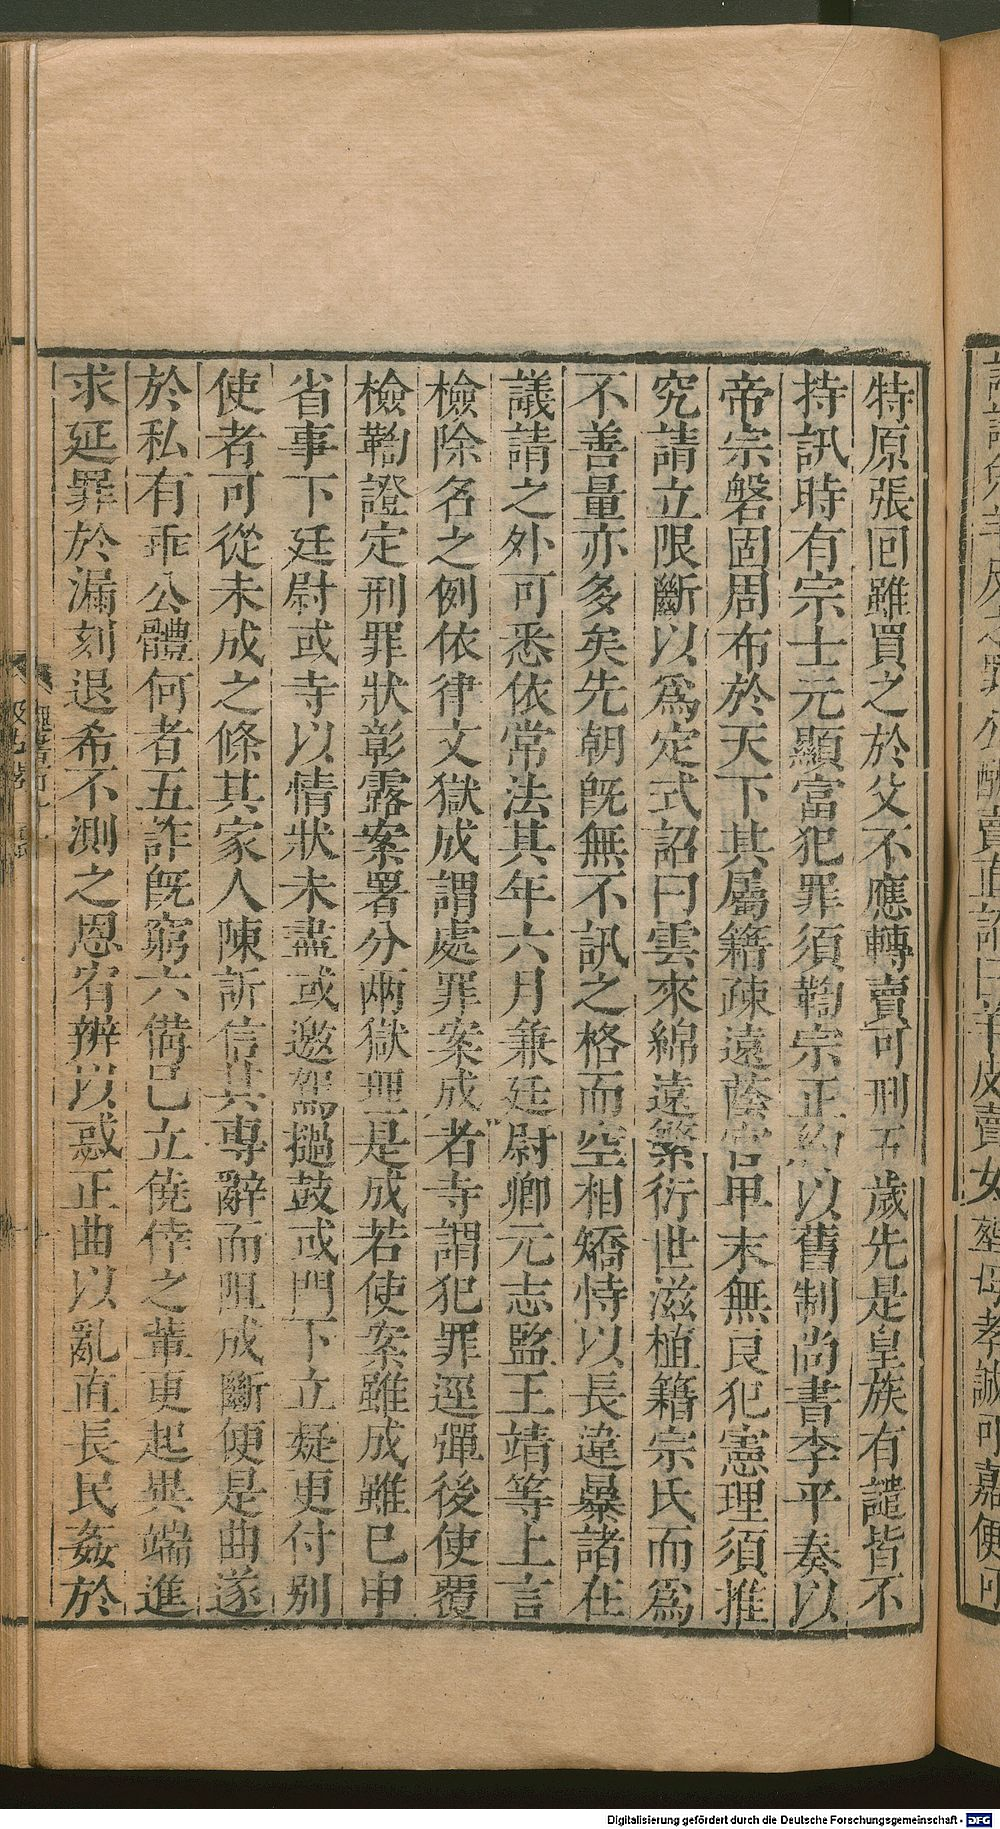 特原張回雖買之於父不應轉賣可刑五歲先是皇族有譴皆不
持訊時有宗士元顯富犯罪須鞫宗正約以舊制尚書李平奏以
帝宗磐固周布於天下其屬籍疎遠蔭官甲末無良犯憲理須推
究請立限斷以爲定式詔曰雲來綿遠繁衍世滋植籍宗氏而爲
不善量亦多矣先朝旣無不訊之格而空相矯恃以長違暴諸在
議請之外可悉依常法其年六月兼廷尉卿元志監王靖等上言
檢除名之例依律文獄成謂處罪案成者寺謂犯罪逕彈後使覆
檢鞫證定刑罪狀彰露案署分兩獄理是成若使案雖成雖已申
省事下廷尉或寺以情狀未盡或邀駕撾鼓或門下立疑更付別
使者可從未成之條其家人陳訴信其專辭而阻成斷便是曲遂
於私有乖公體何者五詐旣窮六備已立僥倖之輩更起異端進
求延罪於漏刻退希不測之恩宥辨以惑正曲以亂直長民姦於
Digitalisierung gefördert durch die Deutsche Forschungsgemeinschaft - DFG